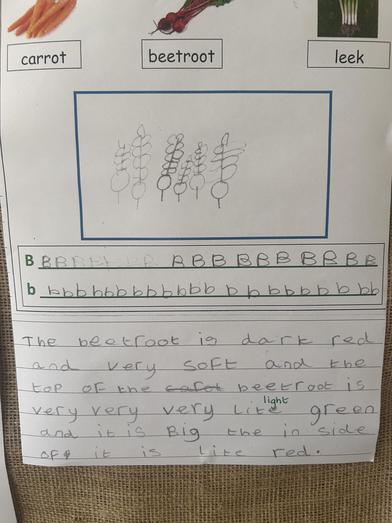 carrot beetroot leek
B B B B B B B B A B B B B B B B B B
b bbbbbbbbbbbb b b b b b b b b b
The beetroot is dark red
and very soft and the
top of the carot beetroot is
light
very very very Lite green
and it is Big the in side
of it is Lite red.